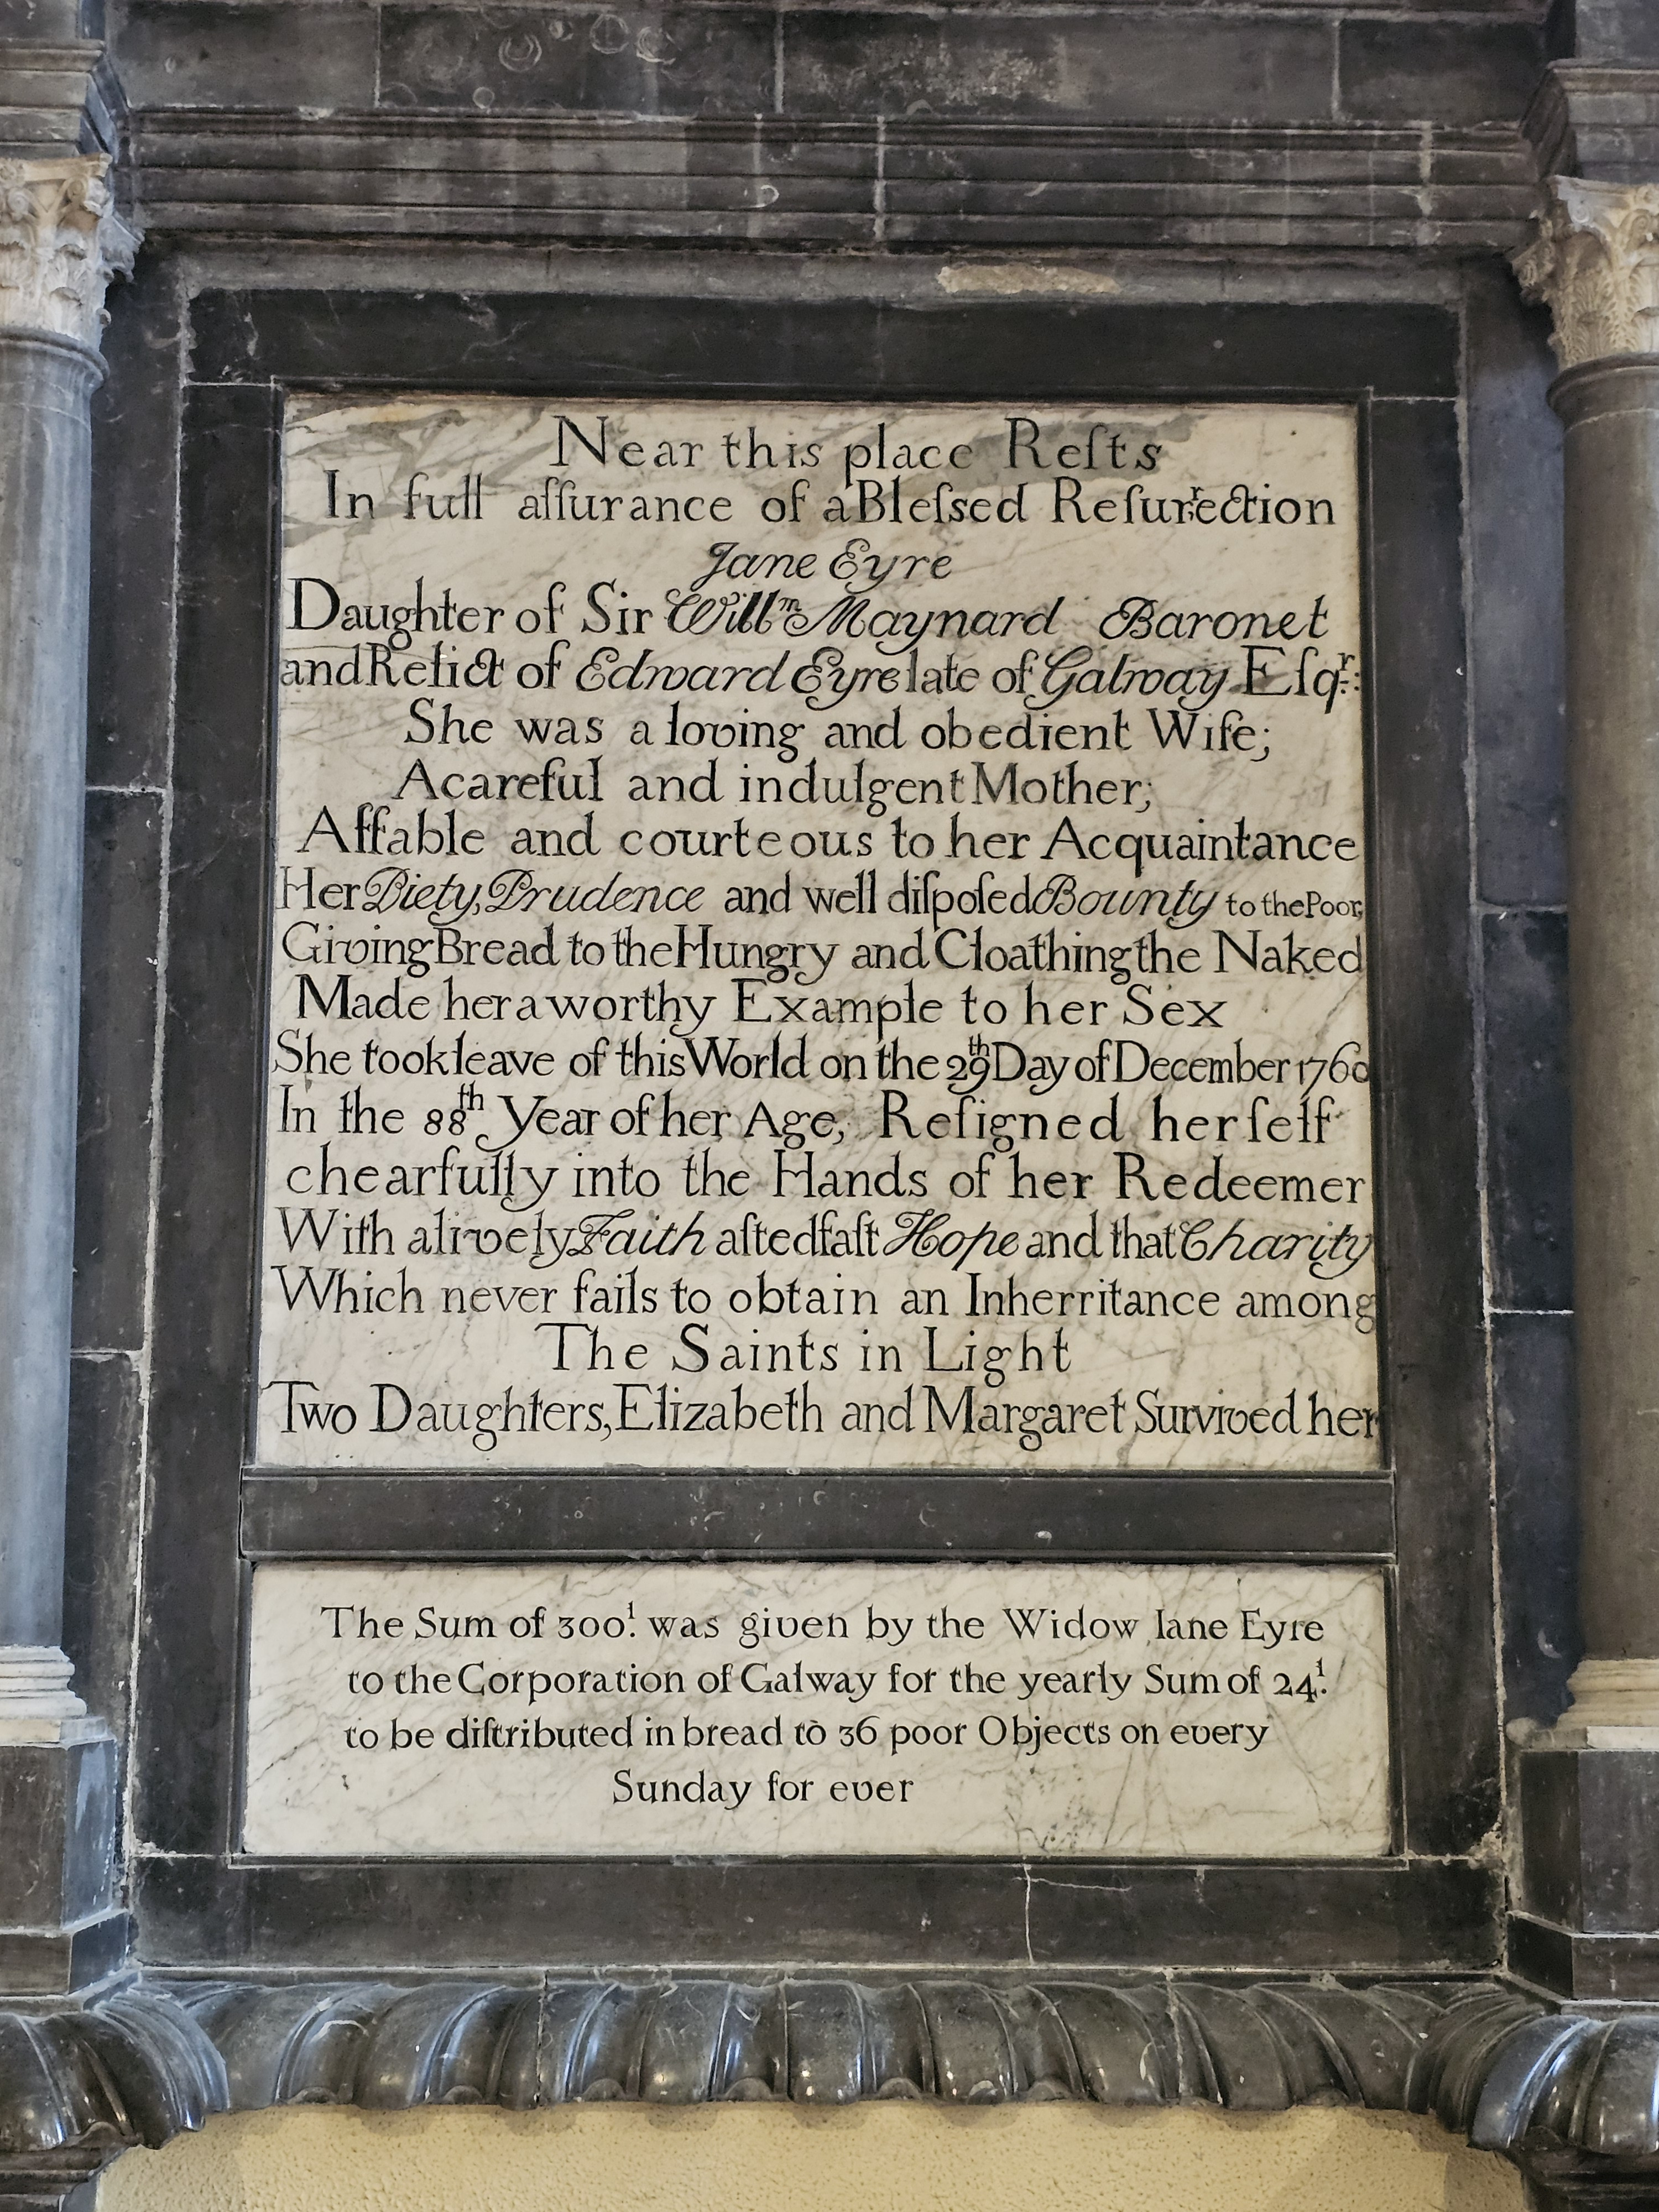 Near this place Reſts
In full aſſurance of a Bleſsed Reſurrection
Jane Eyre
Daughter of Sir Willm Maynard Baronet
and Relict of Edward Eyre late of Galway Eſqr:
She was a loving and obedient Wife;
A careful and indulgent Mother;
Affable and courteous to her Acquaintance
Her Piety, Prudence and well diſpoſed Bounty to the Poor,
Giving Bread to the Hungry and Cloathing the Naked
Made her a worthy Example to her Sex
She took leave of this World on the 29th Day of December 1760
In the 88th Year of her Age, Reſigned herſelf
chearfully into the Hands of her Redeemer
With a lively Faith a ſtedfaſt Hope and that Charity
Which never fails to obtain an Inherritance among
The Saints in Light
Two Daughters, Elizabeth and Margaret Survived her
The Sum of 300l. was given by the Widow Iane Eyre
to the Corporation of Galway for the yearly Sum of 24l.
to be diſtributed in bread to 36 poor Objects on every
Sunday for ever